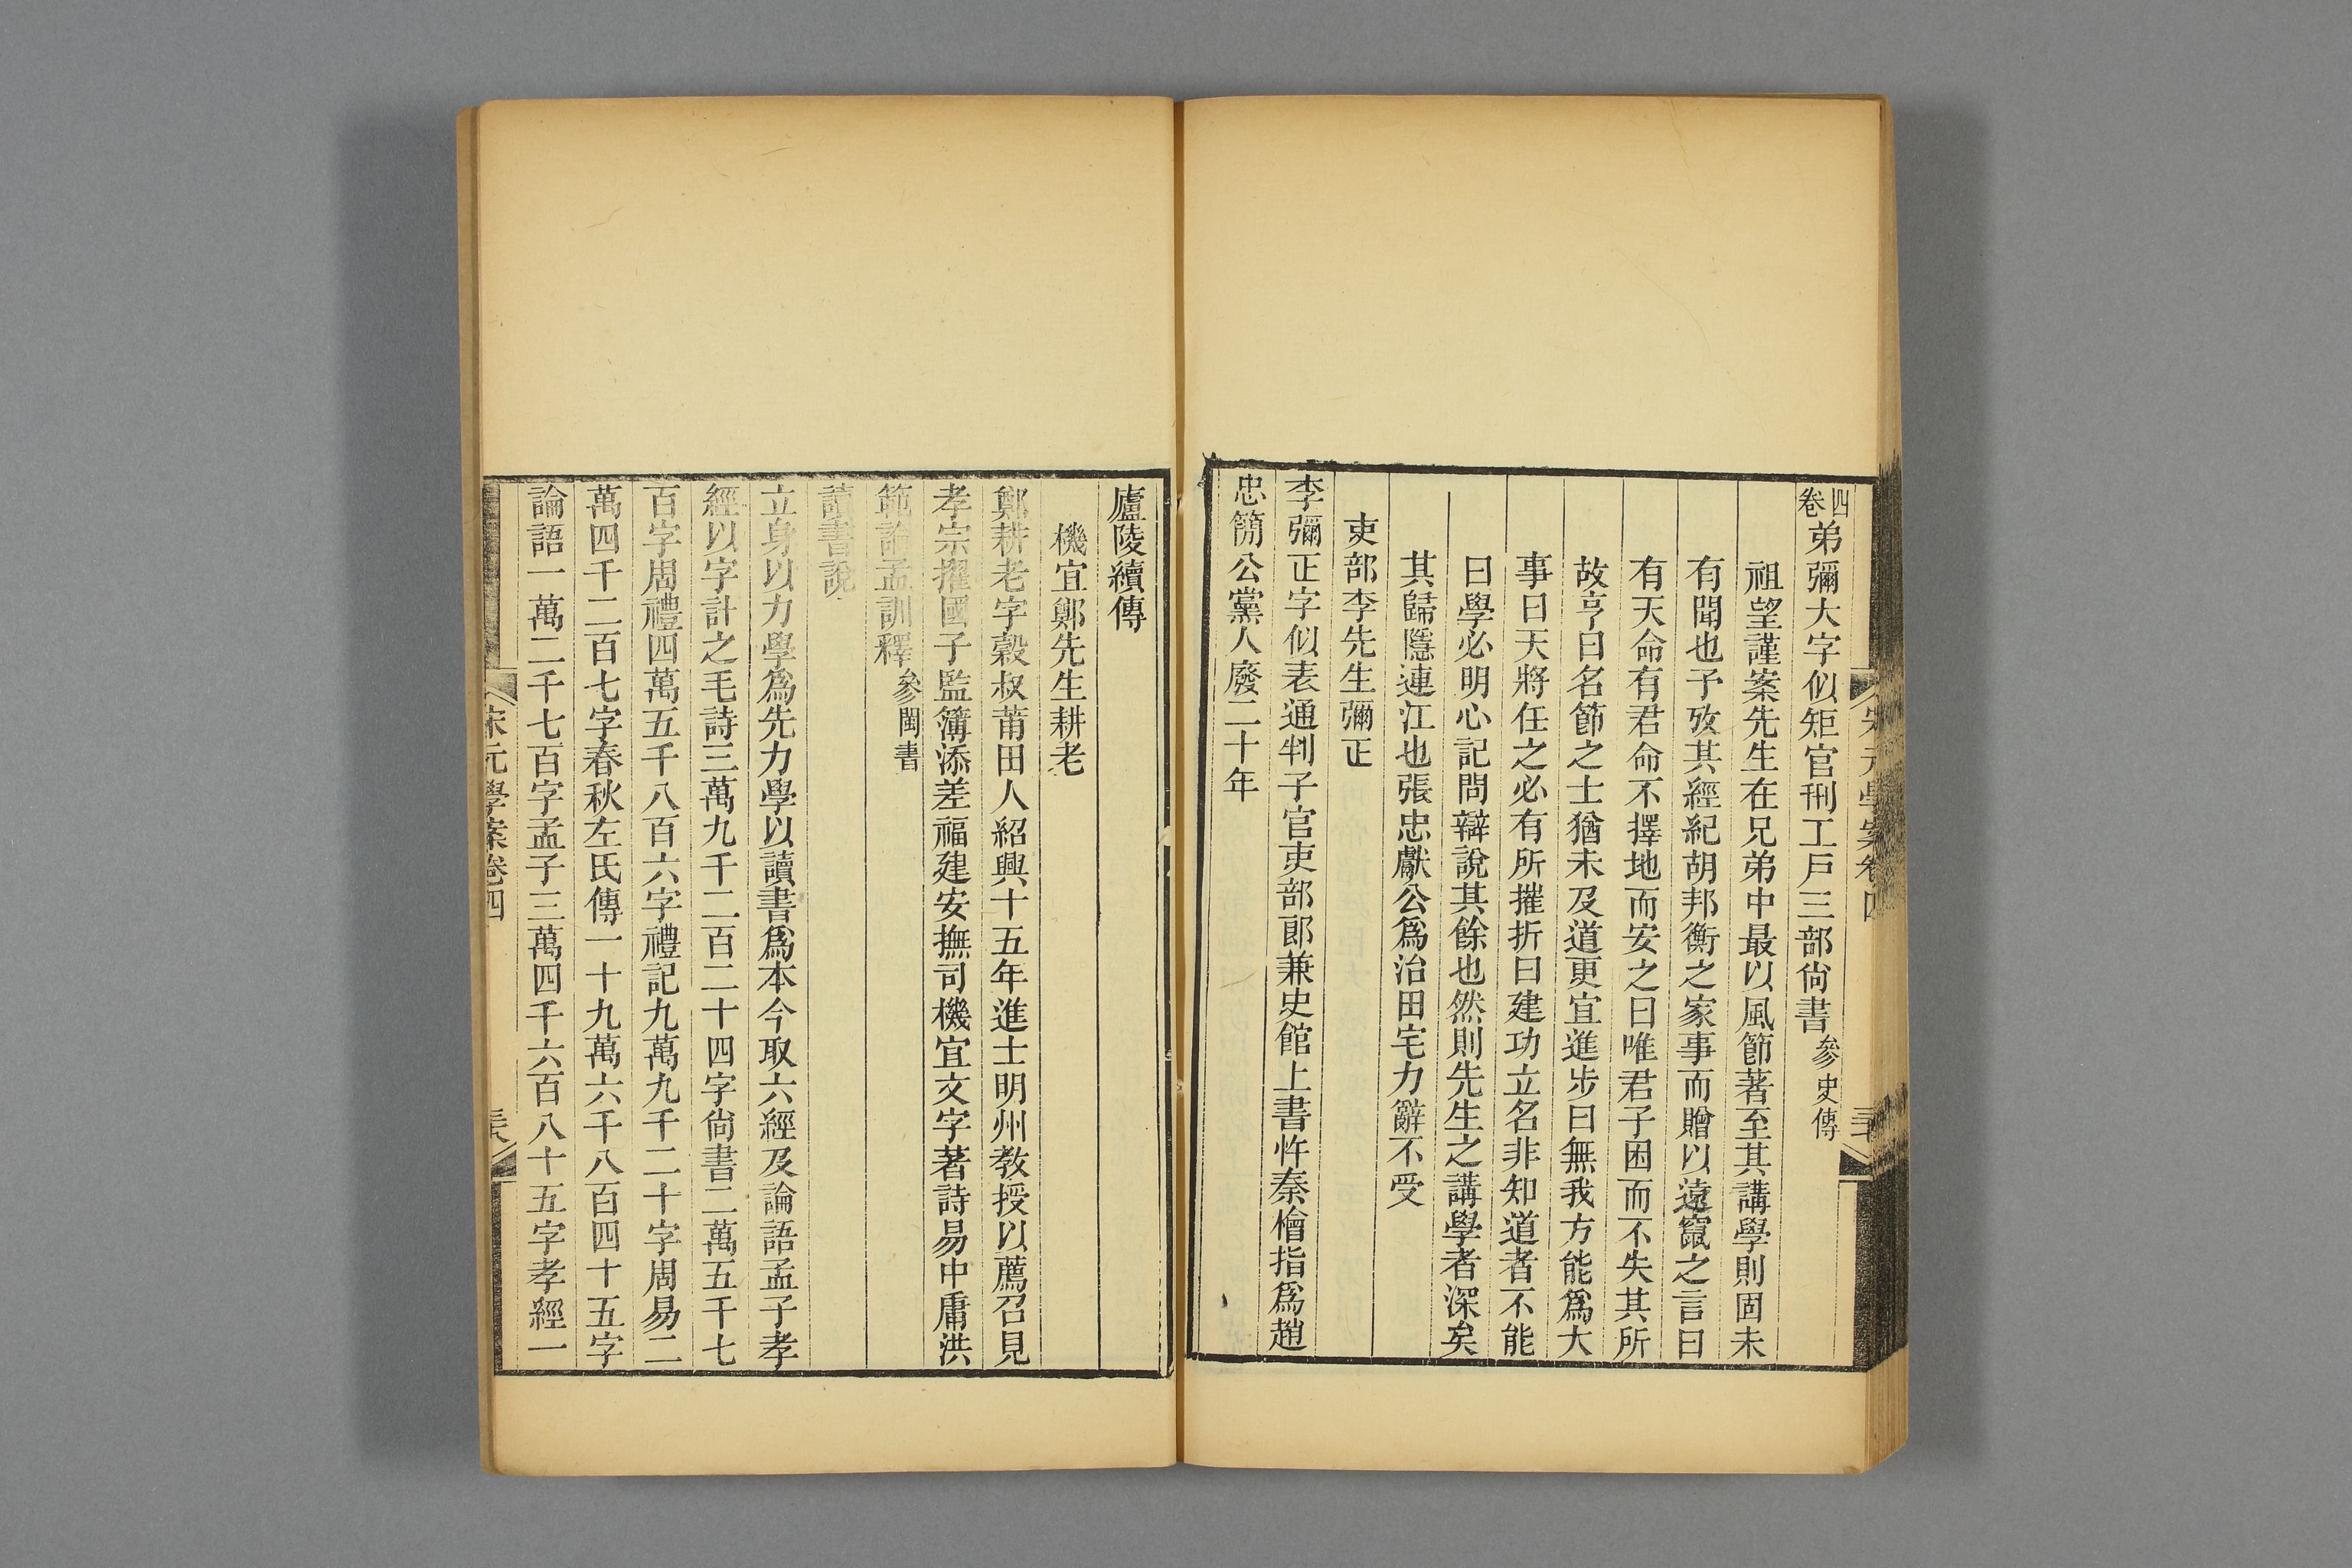 四卷弟彌大字似矩官刑工戶三部尙書參史傳
祖望謹案先生在兄弟中最以風節著至其講學則固未
有聞也予攷其經紀胡邦衡之家事而贈以遠竄之言曰
有天命有君命不擇地而安之曰唯君子困而不失其所
故亨曰名節之士猶未及道更宜進步曰無我方能爲大
事曰天將任之必有所摧折曰建功立名非知道者不能
曰學必明心記問辯說其餘也然則先生之講學者深矣
其歸隱連江也張忠獻公爲治田宅力辭不受
吏部李先生彌正
李彌正字似表通判子官吏部郎兼史館上書忤秦檜指爲趙
忠簡公黨人廢二十年
廬陵續傳
機宜鄭先生耕老
鄭耕老字穀叔莆田人紹興十五年進士明州教授以薦召見
孝宗擢國子監簿添差福建安撫司機宜文字著詩易中庸洪
範論孟訓釋參閩書
讀書說
立身以力學爲先力學以讀書爲本今取六經及論語孟子孝
經以字計之毛詩三萬九千二百二十四字尙書二萬五千七
百字周禮四萬五千八百六字禮記九萬九千二十字周易二
萬四千二百七字春秋左氏傳一十九萬六千八百四十五字
論語一萬二千七百字孟子三萬四千六百八十五字孝經一
宋元學案卷四